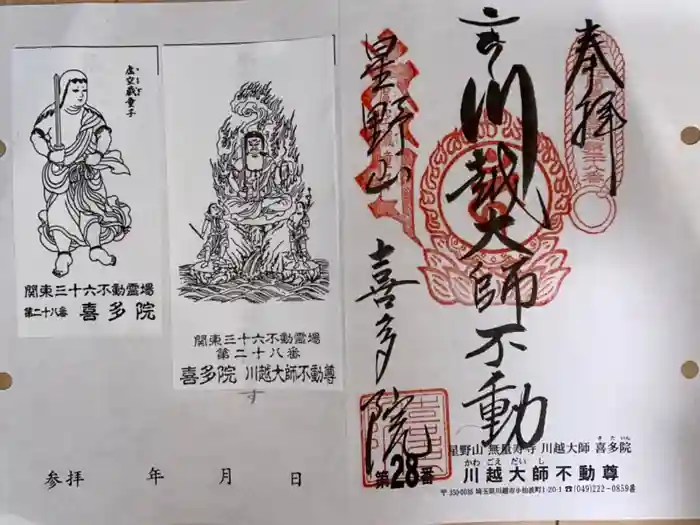 奉拝
川越大師不動
星野山
喜多院
虚空蔵童子
関東三十六不動霊場
第二十八番 喜多院
関東三十六不動霊場
第二十八番
喜多院 川越大師不動尊
参拝 年 月 日
星野山 無量寿寺 川越大師 喜多院
きたいん
かわごえだいし
第28番 川越大師不動尊
〒350-0036 埼玉県川越市小仙波町1-20-1 ☎(049)222-0859番